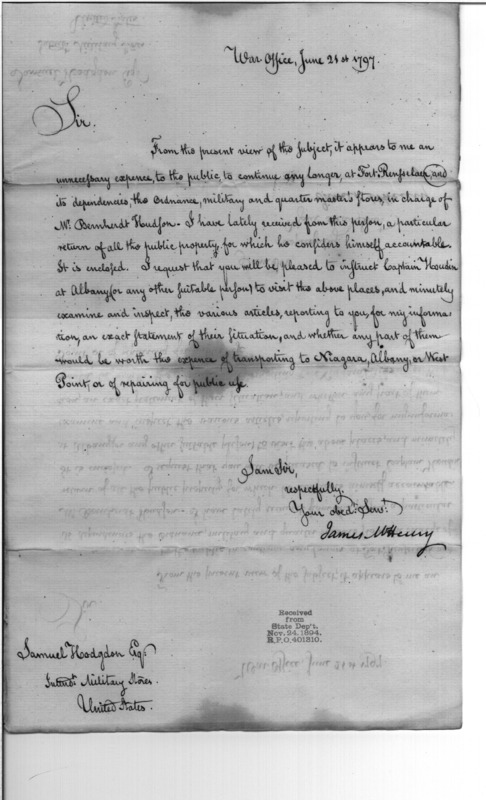 War Office, June 21st 1797.
Sir.
From the present view of the subject, it appears to me an
unnecessary expence, to the public, to continue any longer, at Fort Renselaer, and
its dependencies, the ordnance, military and quarter master's stores, in charge of
Mr. Bernherdt Houdson. I have lately received from this person, a particular
return of all the public property, for which he considers himself accountable.
It is enclosed. I request that you will be pleased to instruct Captain Houdin
at Albany (or any other suitable person) to visit the above places, and minutely
examine and inspect, the various articles, reporting to you, for my informa
tion, an exact statement of their situation, and whether any part of them
would be worth the expence of transporting to Niagara, Albany, or West
Point, or of repairing for public use.
I am Sir,
respectfully,
Your obed. Servt.
James McHenry
Received
from
State Dep't.
Nov. 24, 1894.
R.P.O. 401310.
Samuel Hodgdon Esq.
Intendt. Military Stores.
United States.